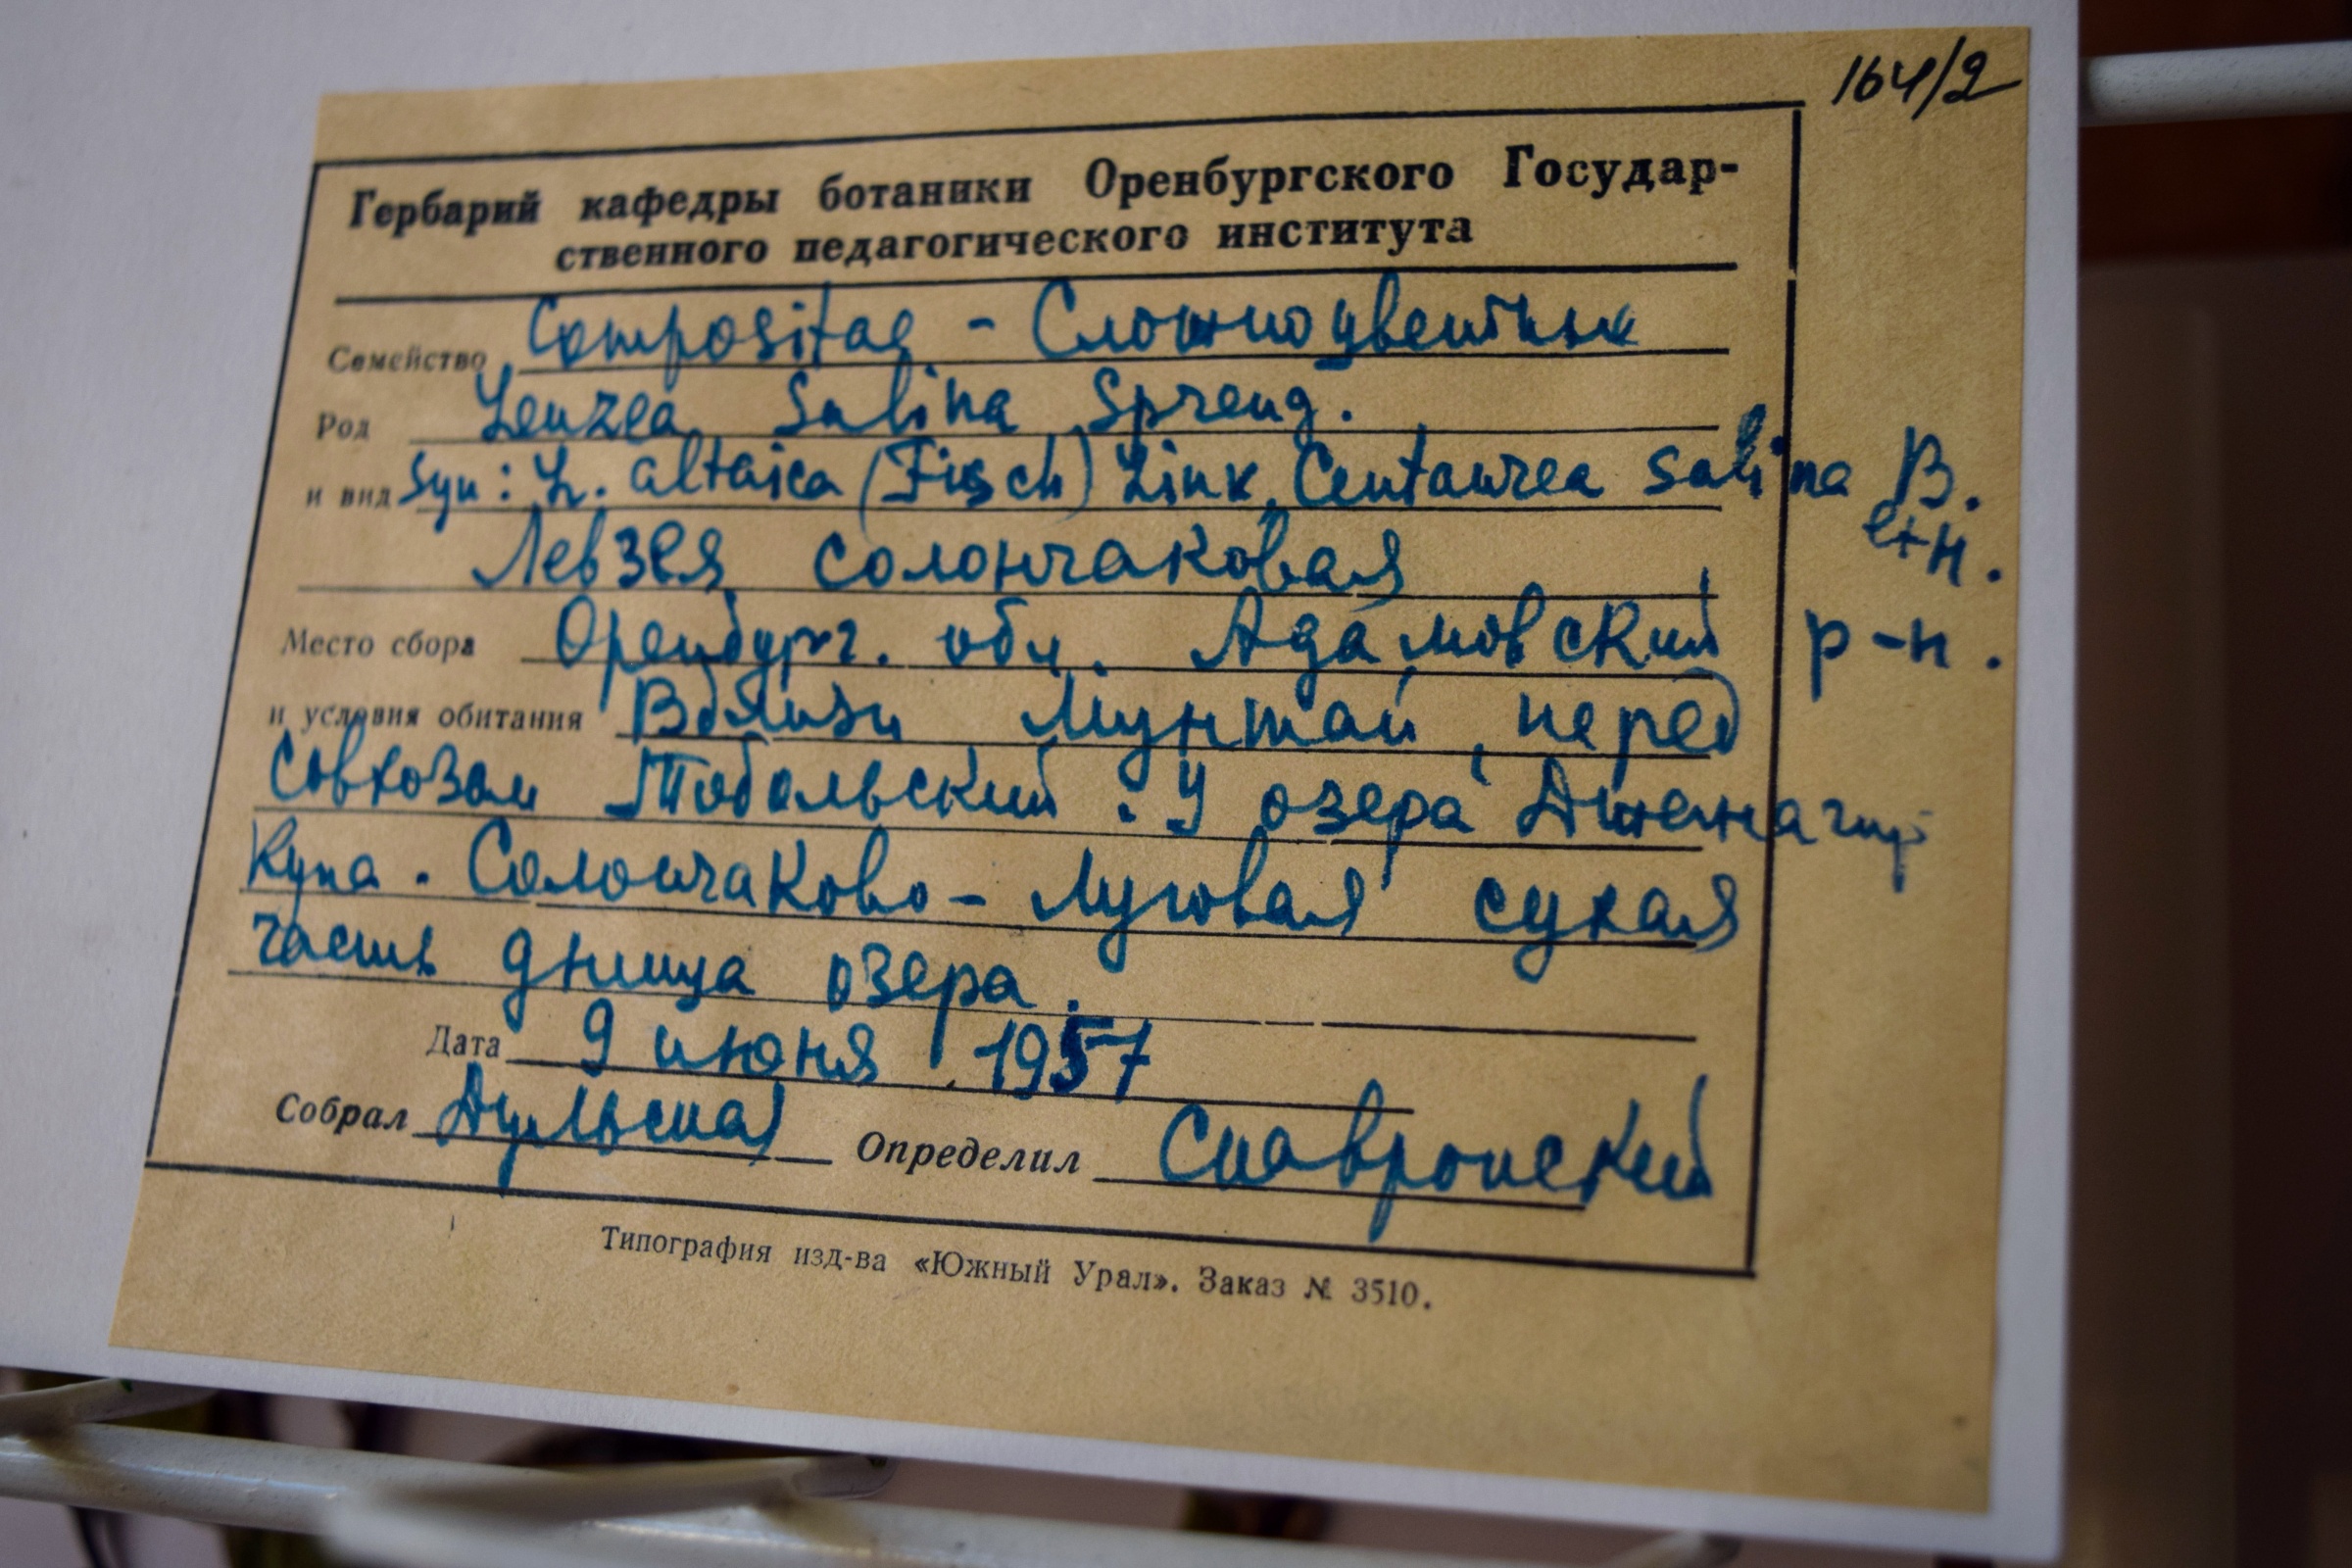 164/2
Гербарий кафедры ботаники Оренбургского Государ-
ственного педагогического института
Семейство Compositae - Сложноцветных
Род Leuzea Salina Spreng.
и вид Syn: L. altaica (Fisch) Link, Centaurea salina B.
Левзея солончаковая
Место сбора Оренбург. обл. Адамовский р-н.
и условия обитания Вблизи перед
совхозом Тобольский. У озера
Солончаково-луговая сухая
часть днища озера.
Дата 9 июня 1957
Собрал Определил
Типография изд-ва «Южный Урал». Заказ № 3510.